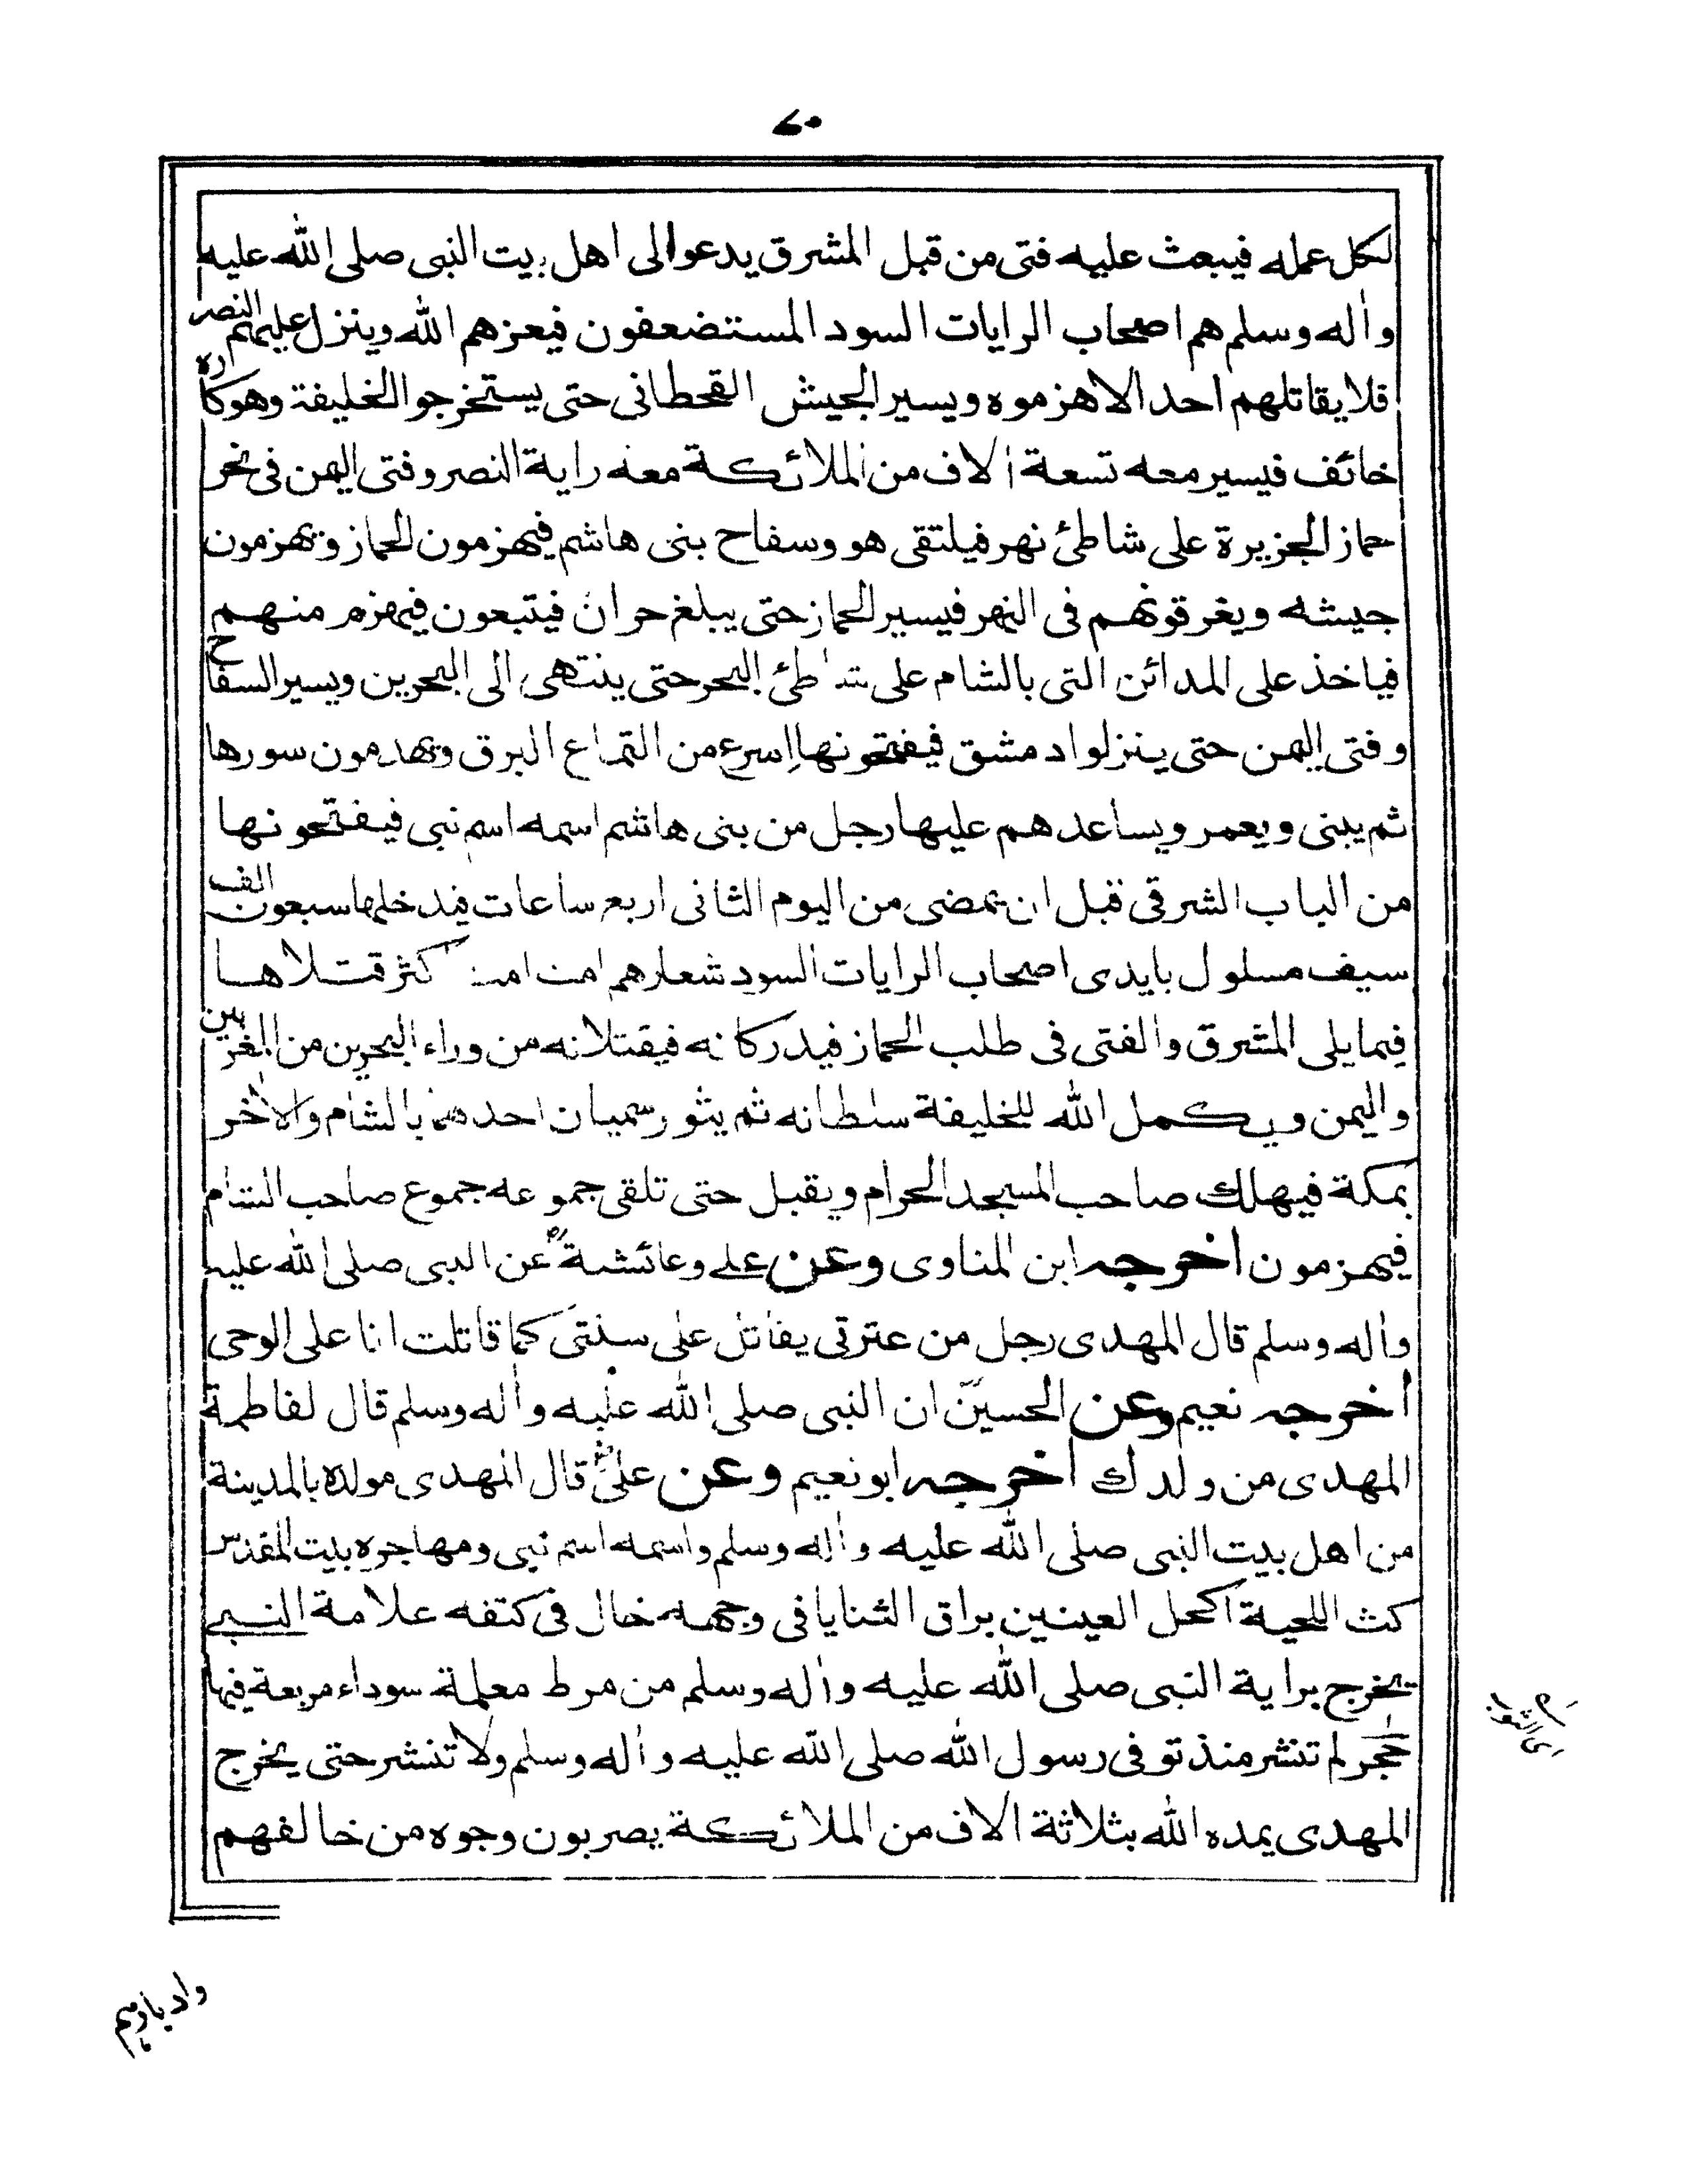 لكل عمله فيبعث عليه فتى من قبل المشرق يدعو الى اهل بيت النبى صلى الله عليه
واٰله وسلم هم اصحاب الرايات السود المستضعفون فيعزهم الله وينزل عليهم النصر
فلا يقاتلهم احد الا هزموه ويسير الجيش القحطانى حتى يستخرجوا الخليفة وهو كاره
خائف فيسير معه تسعة اٰلاف من الملائكة معه راية النصر وفتى اليمن فى نحر
حماز الجزيرة على شاطئ نهر فيلتقى هو وسفاح بنى هاشم فيهزمون الحماز ويهزمون
جيشه ويغرقونهم فى النهر فيسير الحماز حتى يبلغ حران فيتبعون فيهزم منهم
فياخذ على المدائن التى بالشام على شاطئ البحر حتى ينتهى الى البحرين ويسير السفاح
وفتى اليمن حتى ينزلوا دمشق فيفتحونها اسرع من التماع البرق ويهدمون سورها
ثم يبنى ويعمر ويساعدهم عليها رجل من بنى هاشم اسمه اسم نبى فيفتحونها
من الباب الشرقى قبل ان تمضى من اليوم الثانى اربع ساعات فيدخلها سبعون الف
سيف مسلول بايدى اصحاب الرايات السود شعارهم امت امت اكثر قتلاها
فيما يلى المشرق والفتى فى طلب الحماز فيدركانه فيقتلانه من وراء البحرين من المغربين
واليمن ويكمل الله للخليفة سلطانه ثم يثور سميان احدهما بالشام والاٰخر
بمكة فيهلك صاحب المسجد الحرام ويقبل حتى تلقى جموعه جموع صاحب الشام
فيهزمون اخرجه ابن المناوى وعن على وعائشة عن النبى صلى الله عليه
واٰله وسلم قال المهدى رجل من عترتى يقاتل على سنتى كما قاتلت انا على الوحى
اخرجه نعيم وعن الحسين ان النبى صلى الله عليه واٰله وسلم قال لفاطمة
المهدى من ولدك اخرجه ابو نعيم وعن على قال المهدى مولده بالمدينة
من اهل بيت النبى صلى الله عليه واٰله وسلم واسمه اسم نبى ومهاجره بيت المقدس
كث اللحية اكحل العينين براق الثنايا فى وجهه خال فى كتفه علامة النبى
يخرج براية النبى صلى الله عليه واٰله وسلم من مرط معلمة سوداء مربعة فيها
حجر لم تنشر منذ توفى رسول الله صلى الله عليه واٰله وسلم ولا تنشر حتى يخرج
المهدى يمده الله بثلاثة الاف من الملائكة يضربون وجوه من خالفهم
وادبارهم